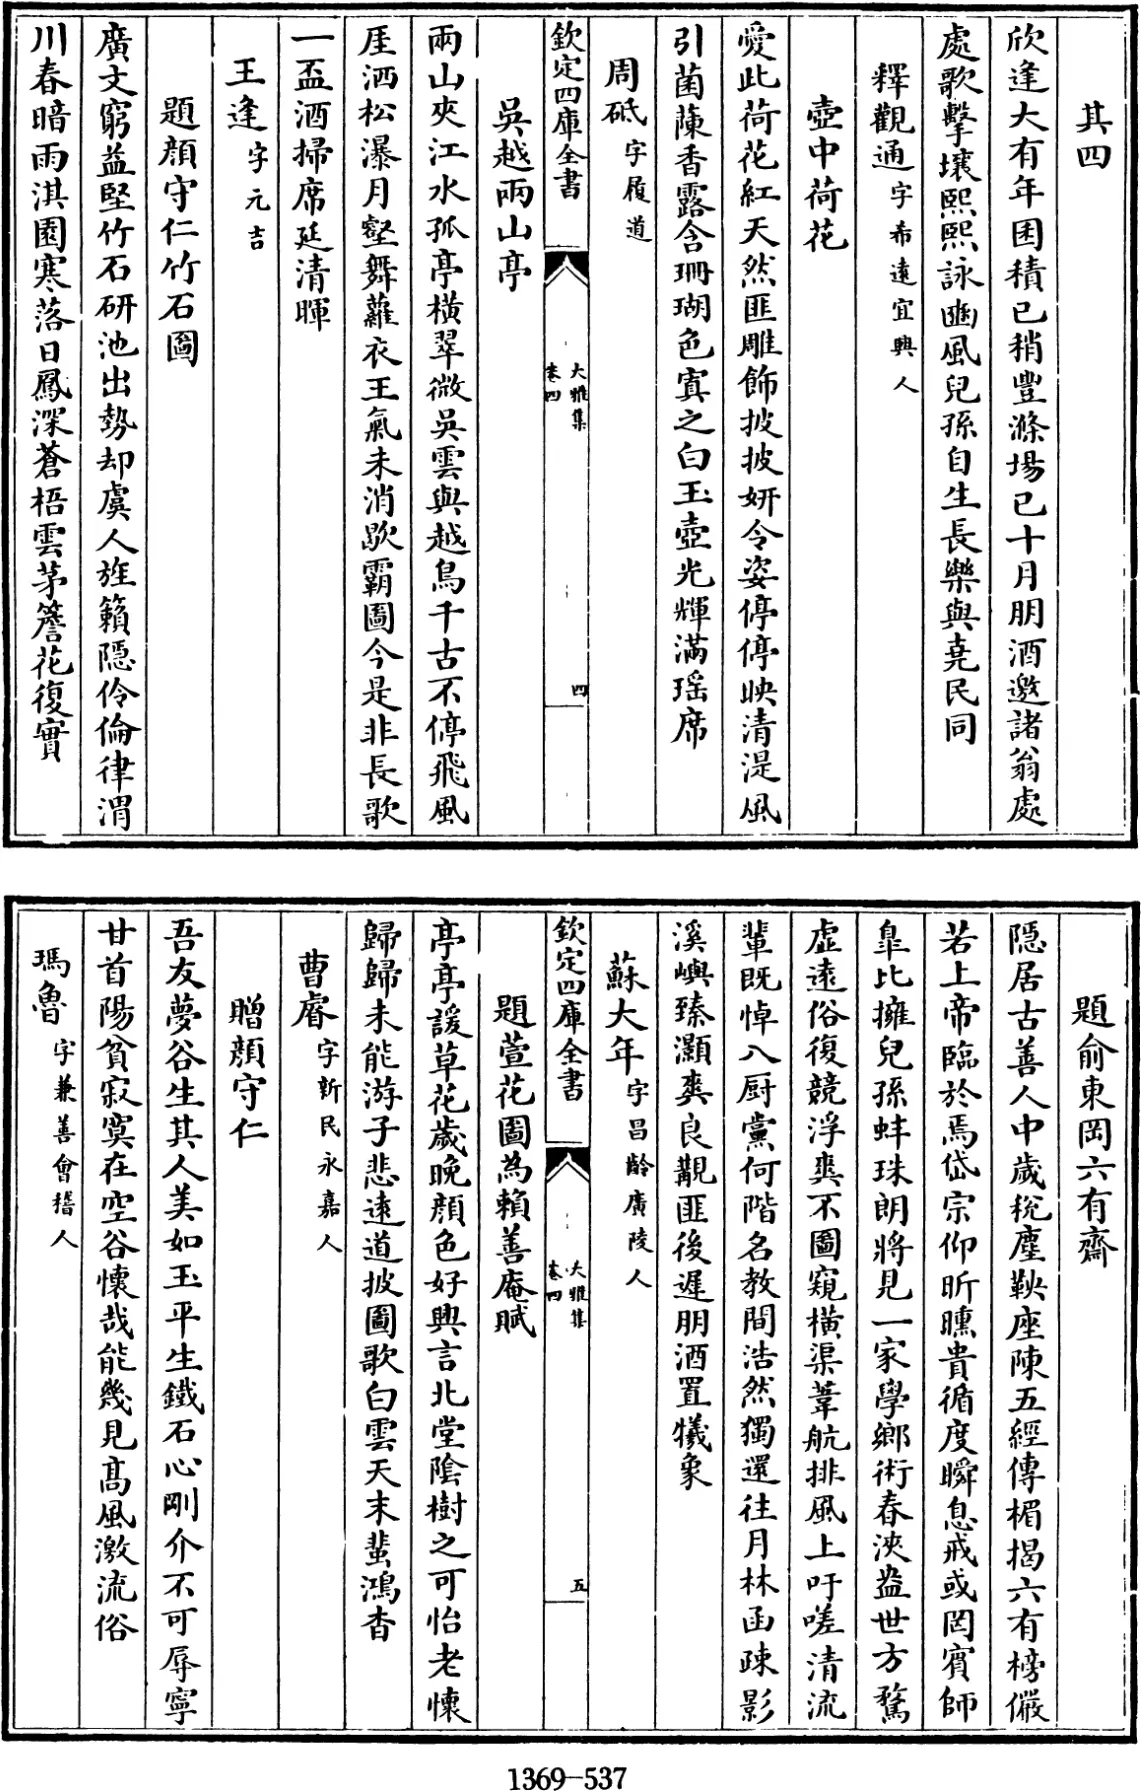 其四
欣逢大有年囷積已稍豐滌場已十月朋酒邀諸翁處
處歌擊壤熙熙詠豳風兒孫自生長樂與堯民同
釋觀通字希遠宜興人
壺中荷花
愛此荷花紅天然匪雕飾披披妍令姿停停映清湜風
引菌蔯香露含珊瑚色寘之白玉壺光輝滿瑤席
周砥字履道
欽定四庫全書
大雅集
卷四
四
吳越兩山亭
兩山夾江水孤亭橫翠微吳雲與越鳥千古不停飛風
厓洒松瀑月壑舞蘿衣王氣未消歇霸圖今是非長歌
一盃酒掃席延清暉
王逢字元吉
題顔守仁竹石圖
廣文窮益堅竹石研池出勢却虞人旌籟隱伶倫律渭
川春暗雨淇園寒落日鳳深蒼梧雲茅簷花復實
題俞東岡六有齋
隠居古善人中歳稅塵鞅座陳五經傳楣揭六有榜儼
若上帝臨於焉岱宗仰昕曛貴循度瞬息戒或罔賓師
臯比擁兒孫蚌珠朗將見一家學鄉術春浹盎世方騖
虛遠俗復競浮爽不圖窺橫渠葦航排風上吁嗟清流
輩既悼入厨黨何階名教間浩然獨還往月林函疎影
溪嶼臻灝爽良覯匪後遲朋酒置犧象
蘇大年字昌齡廣陵人
欽定四庫全書
大雅集
卷四
五
題萱花圖為賴善庵賦
亭亭諼草花歲晩顔色好興言北堂陰樹之可怡老懷
歸歸未能游子悲遠道披圖歌白雲天末蜚鴻杳
曹睿字新民永嘉人
贈顔守仁
吾友夢谷生其人美如玉平生鐵石心剛介不可辱寧
甘首陽貧寂寞在空谷懷哉能幾見高風激流俗
瑪魯字兼善會稽人
1369-537